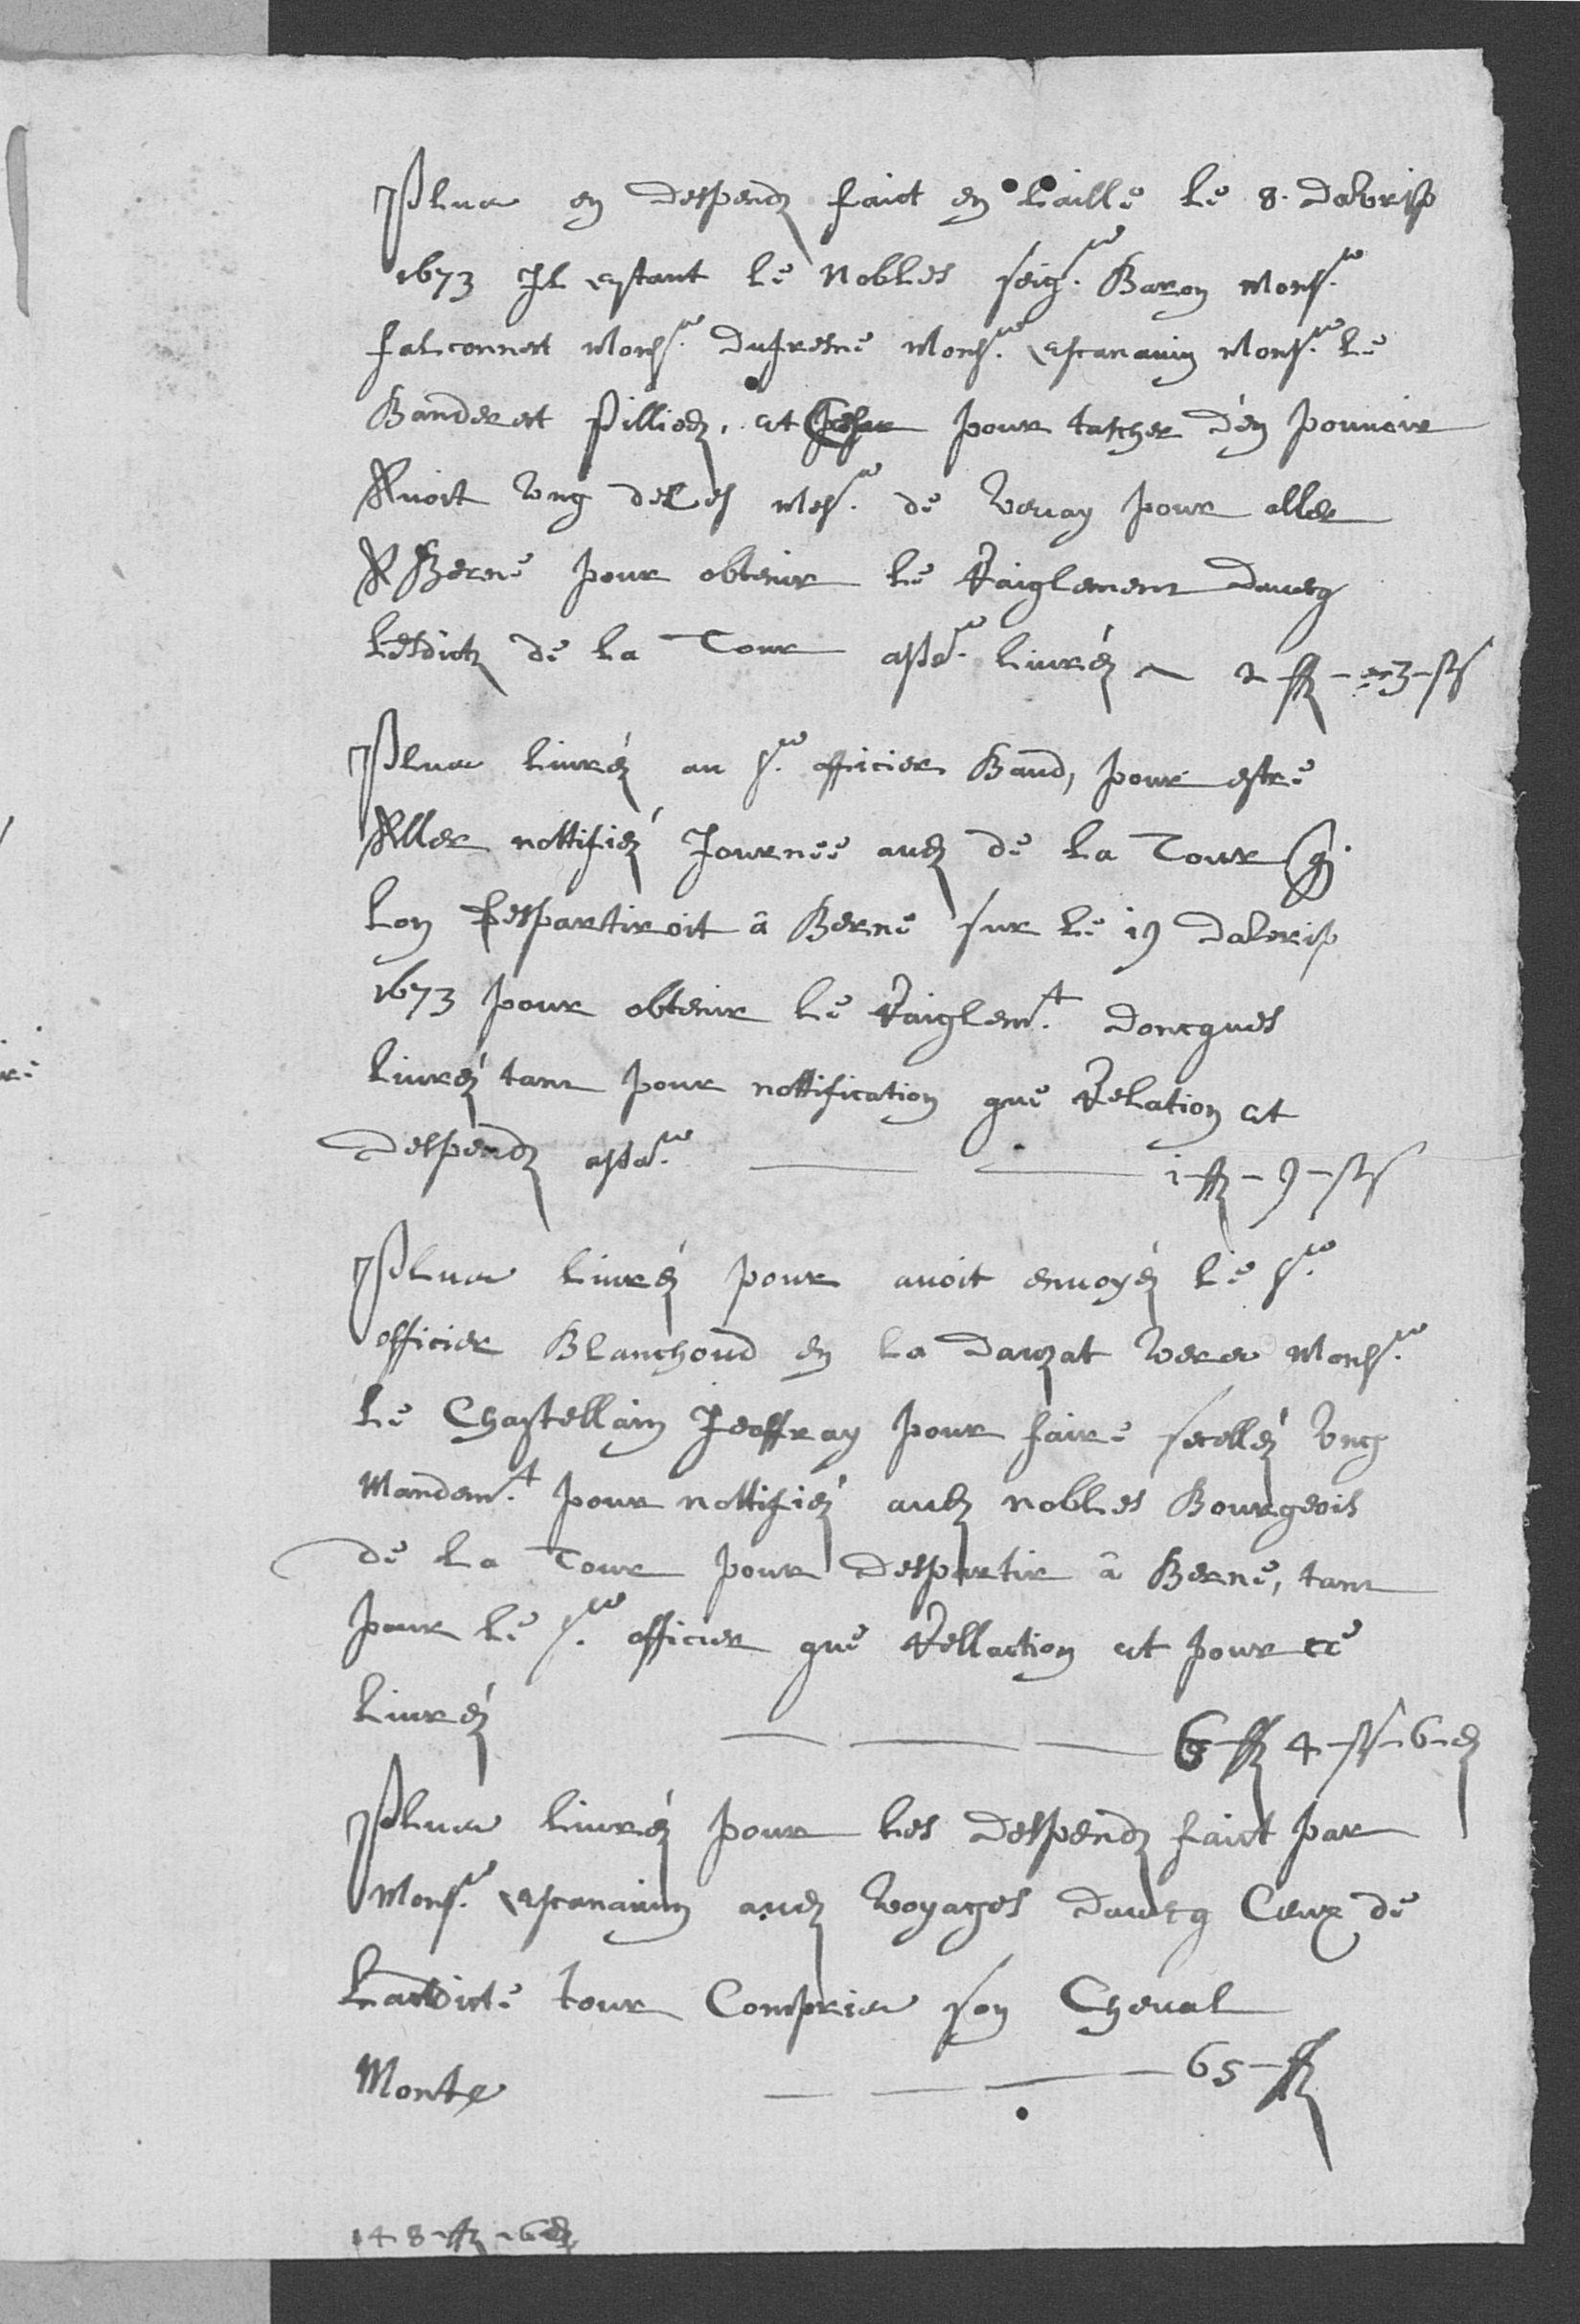 Plus en despendz faict en l'aille le 8. dabvril
1673 Il estant le Nobles seigr. Baron Monsr.
falconnet Monsr. dufresne Monsr. escanavin Monsr. le
Banderet pilliod, et pour tascher d'en pouvoir
Avoit ung deces Mesr. de vevay pour aller
A Berne pour obtenir le Raiglement davecq
lesdictz de la Tour assa. livréz 2 ff - 3 - ss
Plus livréz au sr. officier Baud, pour estre
Aller nottifiéz Journee aux de la Tour q.
lon despartiroit à Berne sur le 19 dabvril
1673 pour obtenir le Raiglemt. doncques
livréz tant pour nottification que Relation et
despendz assa. 1 ff - 9 - ss
Plus livréz pour avoit envoyéz le sr.
officier Blanchoud en la dauzat vers Monsr.
le Chastellain Jeoffray pour faire scelléz ung
Mandemt. pour nottifiéz aux nobles Bourgeois
de la Tour pour despartir à Berne, tant
pour le sr. officier que Rellaction et pour ce
livréz 6 ff 4 - ss - 6 - d
Plus livréz pour les despendz faict par
Monsr. escanavin aux voyages davecq Ceux de
Ladicte tour Compris son Cheval
Monte 65 - ff
148 - ff - 6 d